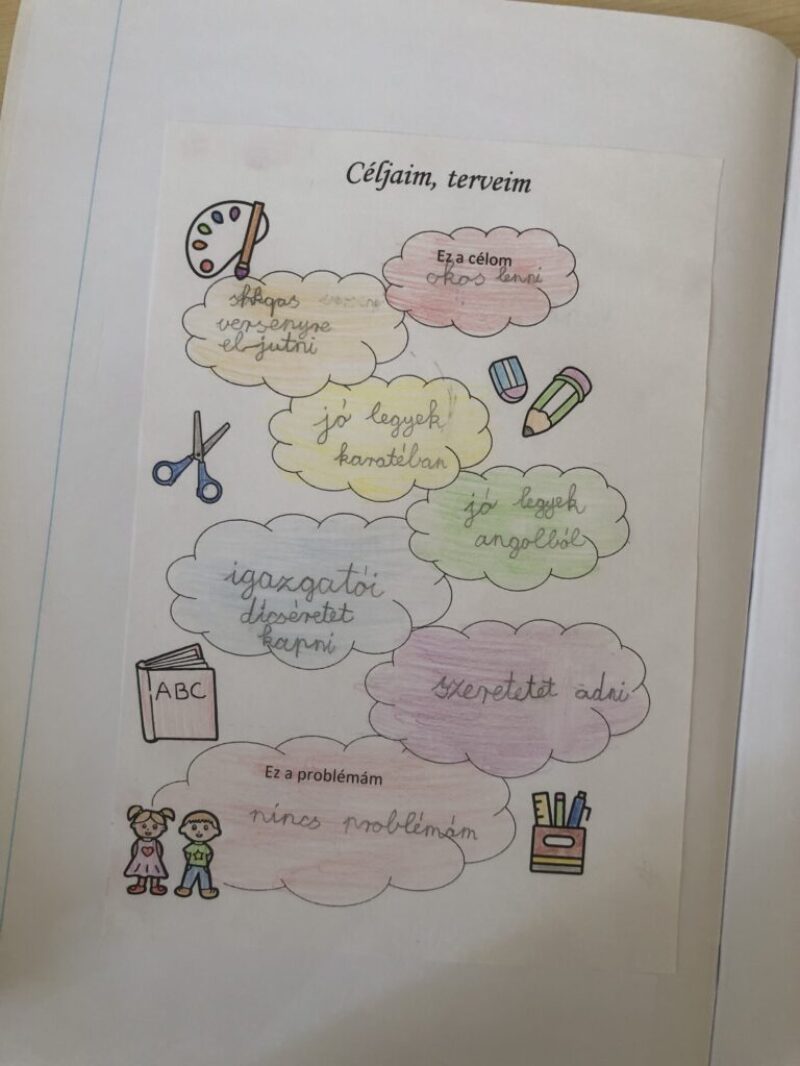 Céljaim, terveim
Ez a célom
okos lenni
versenyre
el jutni
jó legyek
karatéban
jó legyek
angolból
igazgatói
dicséretet
kapni
szeretetet adni
ABC
Ez a problémám
nincs problémám